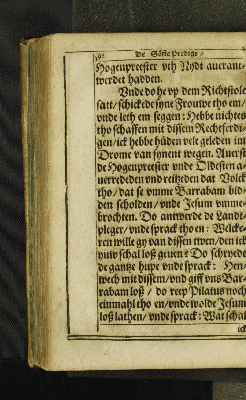 De Söste Predige /
Hogenpreester vth Nydt auerant-
werdet hadden.
Vnde do he vp dem Richtstole
satt / schickede syne Frouwe tho em /
vnde leth em seggen: Hebbe nichtes
tho schaffen mit dissem Rechtferdi-
gen / ick hebbe hüden vele geleden im
Drome van synent wegen. Auerst
de Hogenpreester vnde Oldesten a-
uerrededen vnd reitzeden dat Volck
tho / dat se vmme Barrabam bid-
den scholden / vnde Jesum vmme-
brochten. Do antwerde de Landt-
pleger / vnde sprack tho en: Welcke-
ren wille gy van dissen twen / den ick
yuw schal loß geuen? Do schryede
de gantze hupe vnde sprack: Hen-
wech mit dissem / vnd giff vns Bar-
rabam loß / do reep Pilatus noch
einmahl tho en / vnde wolde Jesum
loß lathen / vnde sprack: Wat schal
ick